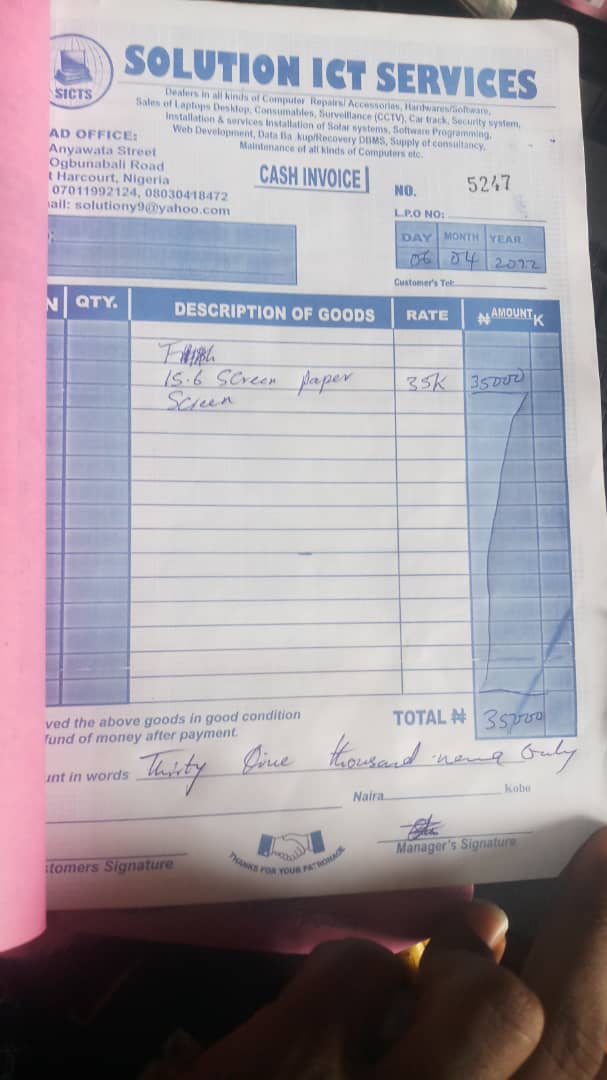 SICTS
SOLUTION ICT SERVICES
Dealers in all kinds of Computer Repairs/ Accessories, Hardwares/Software,
Sales of Laptops Desktop, Consumables, Surveillance (CCTV), Car track, Security system,
Installation & services Installation of Solar systems, Software Programming,
Web Development, Data Ba kup/Recovery DBMS, Supply of consultancy,
Maintenance of all kinds of Computers etc.
AD OFFICE:
Anyawata Street
Ogbunabali Road
t Harcourt, Nigeria
07011992124, 08030418472
ail: solutiony9@yahoo.com
CASH INVOICE
NO. 5247
L.P.O NO:
DAY MONTH YEAR
06 04 2022
Customer's Tel:
N QTY. DESCRIPTION OF GOODS RATE ₦ AMOUNT K
15.6 Screen paper 35K 35000
Screen
ved the above goods in good condition
fund of money after payment.
TOTAL ₦ 35000
unt in words Thirty thousand Only
Naira Kobo
stomers Signature
THANKS FOR YOUR PATRONAGE
Manager's Signature